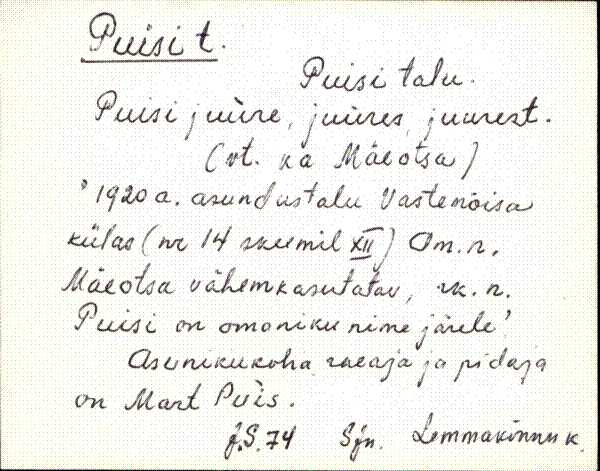 Puisi t.
Puisi talu.
Puisi juure, juures, juurest.
(vt. ka Mäeotsa)
' 1920 a. asundustalu Vastemõisa
külas (nr 14 skeemil XII) Om. n.
Mäeotsa vähemkasutatav, rk. n.
Puisi on omaniku nime järele'
Asunikukoha rajaja ja pidaja
on Mart Puis.
J.S. 74 Sjn. Lemmakõnnu k.